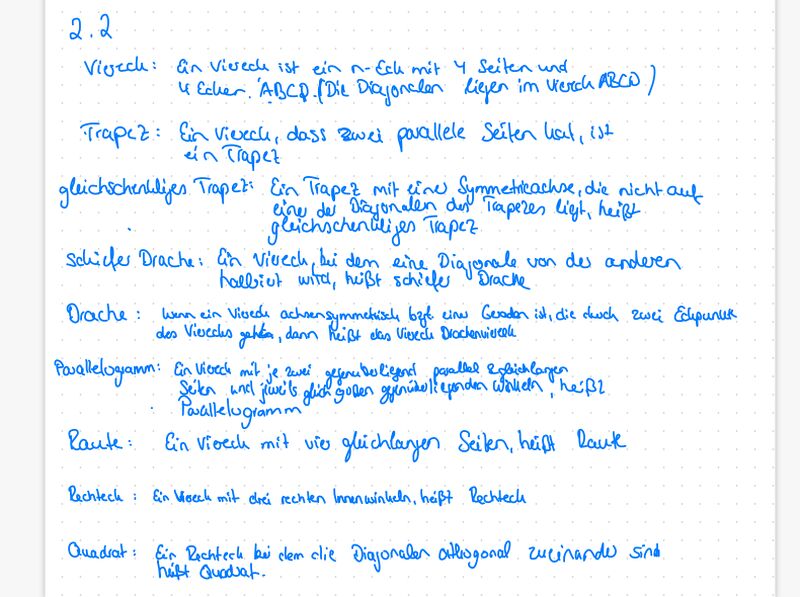 2.2
Viereck: Ein Viereck ist ein n-Eck mit 4 Seiten und
4 Ecken. ABCD. (Die Diagonalen liegen im Viereck ABCD)
Trapez: Ein Viereck, dass zwei parallele Seiten hat, ist
ein Trapez
gleichschenkliges Trapez: Ein Trapez mit einer Symmetrieachse, die nicht auf
eine der Diagonalen des Trapezes liegt, heißt
gleichschenkliges Trapez
schiefer Drache: Ein Viereck, bei dem eine Diagonale von der anderen
halbiert wird, heißt schiefer Drache
Drache: Wenn ein Viereck achsensymmetrisch bzgl. einer Geraden ist, die durch zwei Eckpunkte
des Vierecks gehen, dann heißt das Viereck Drachenviereck
Parallelogramm: Ein Viereck mit je zwei gegenüberliegend parallel & gleichlangen
Seiten und jeweils gleich großen gegenüberliegenden Winkeln, heißt
Parallelogramm
Raute: Ein Viereck mit vier gleichlangen Seiten, heißt Raute
Rechteck: Ein Viereck mit drei rechten Innenwinkeln, heißt Rechteck
Quadrat: Ein Rechteck bei dem die Diagonalen orthogonal zueinander sind
heißt Quadrat.